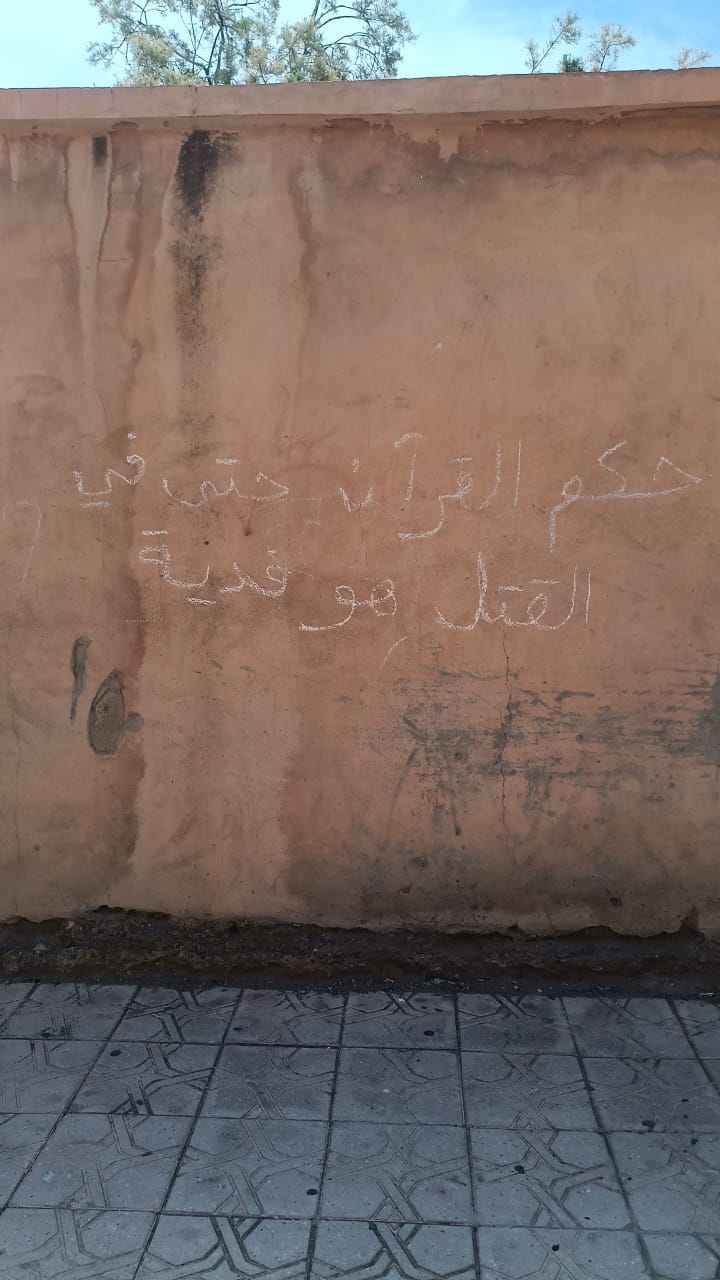 حكم القرآن حتى في
القتل هو فدية